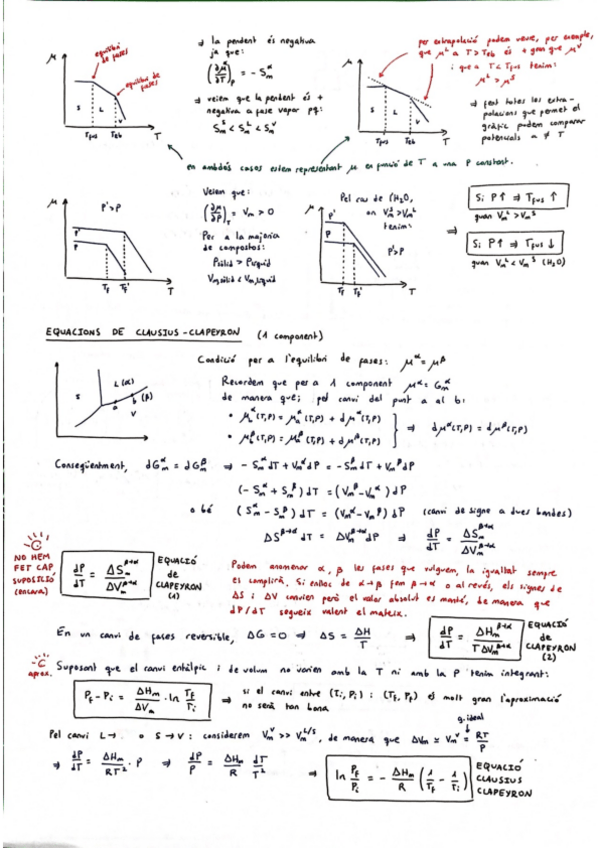 ⇒ la pendent és negativa
ja que:
(∂μ/∂T)_P = - Sm^α
⇒ veiem que la pendent és +
negativa a fase vapor pq:
Sm^S < Sm^L < Sm^V
μ
equilibri
de fases
equilibri de
fases
S L V
Tfus Teb T
per extrapolació podem veure, per exemple,
que μ^L a T > Teb és + gran que μ^V
i que a T < Tfus tenim:
μ^L > μ^S
μ
S L V
Tfus Teb T
⇒ fent totes les extra-
polacions que permet el
gràfic podem comparar
potencials a ≠ T
en ambdós casos estem representant μ en funció de T a una P constant.
μ
P' > P
P'
P
Tf Tf' T
Veiem que:
(∂μ/∂P)_T = Vm > 0
Per a la majoria
de compostos:
ρsòlid > ρlíquid
Vm,sòlid < Vm,líquid
Pel cas de l'H₂O,
on Vm^S > Vm^L
tenim:
μ
P'
P
P' > P
Tf Tf' T
⇒
Si P↑ ⇒ Tfus ↑
quan Vm^L > Vm^S
Si P↑ ⇒ Tfus ↓
quan Vm^L < Vm^S (H₂O)
EQUACIONS DE CLAUSIUS-CLAPEYRON (1 component)
Condició per a l'equilibri de fases: μ^α = μ^β
S
L (α)
a b (β)
V
Recordem que per a 1 component μ^α = Gm^α
de manera que; pel canvi del punt a al b:
• μb^α (T,P) = μa^α (T,P) + dμ^α (T,P)
• μb^β (T,P) = μa^β (T,P) + dμ^β (T,P)
⇒ dμ^α (T,P) = dμ^β (T,P)
Conseqüentment, dGm^α = dGm^β ⇒ - Sm^α dT + Vm^α dP = - Sm^β dT + Vm^β dP
(- Sm^α + Sm^β) dT = (Vm^β - Vm^α) dP
o bé (Sm^α - Sm^β) dT = (Vm^α - Vm^β) dP (canvi de signe a dues bandes)
ΔSm^β→α dT = ΔVm^β→α dP ⇒ dP/dT = ΔSm^β→α / ΔVm^β→α
NO HEM
FET CAP
SUPOSICIÓ
(encara)
dP/dT = ΔSm^β→α / ΔVm^β→α
EQUACIÓ
de
CLAPEYRON
(1)
Podem anomenar α, β les fases que vulguem, la igualtat sempre
es complirà. Si enlloc de α→β fem β→α o al revés, els signes de
ΔS i ΔV canvien però el valor absolut es manté, de manera que
dP/dT segueix valent el mateix.
En un canvi de fases reversible, ΔG = 0 ⇒ ΔS = ΔH/T ⇒ dP/dT = ΔHm^β→α / TΔVm^β→α
EQUACIÓ
de
CLAPEYRON
(2)
aprox.
Suposant que el canvi entàlpic i de volum no varien amb la T ni amb la P tenim integrant:
Pf - Pi = ΔHm/ΔVm · ln Tf/Ti
⇒ si el canvi entre (Ti, Pi) i (Tf, Pf) és molt gran l'aproximació
no serà tan bona
g. ideal
Pel canvi L→ o S→V : considerem Vm^V >> Vm^L/S, de manera que ΔVm ≃ Vm^V = RT/P
⇒ dP/dT = ΔHm/RT² · P ⇒ dP/P = ΔHm/R dT/T² ⇒ ln Pf/Pi = - ΔHm/R (1/Tf - 1/Ti)
EQUACIÓ
CLAUSIUS
CLAPEYRON